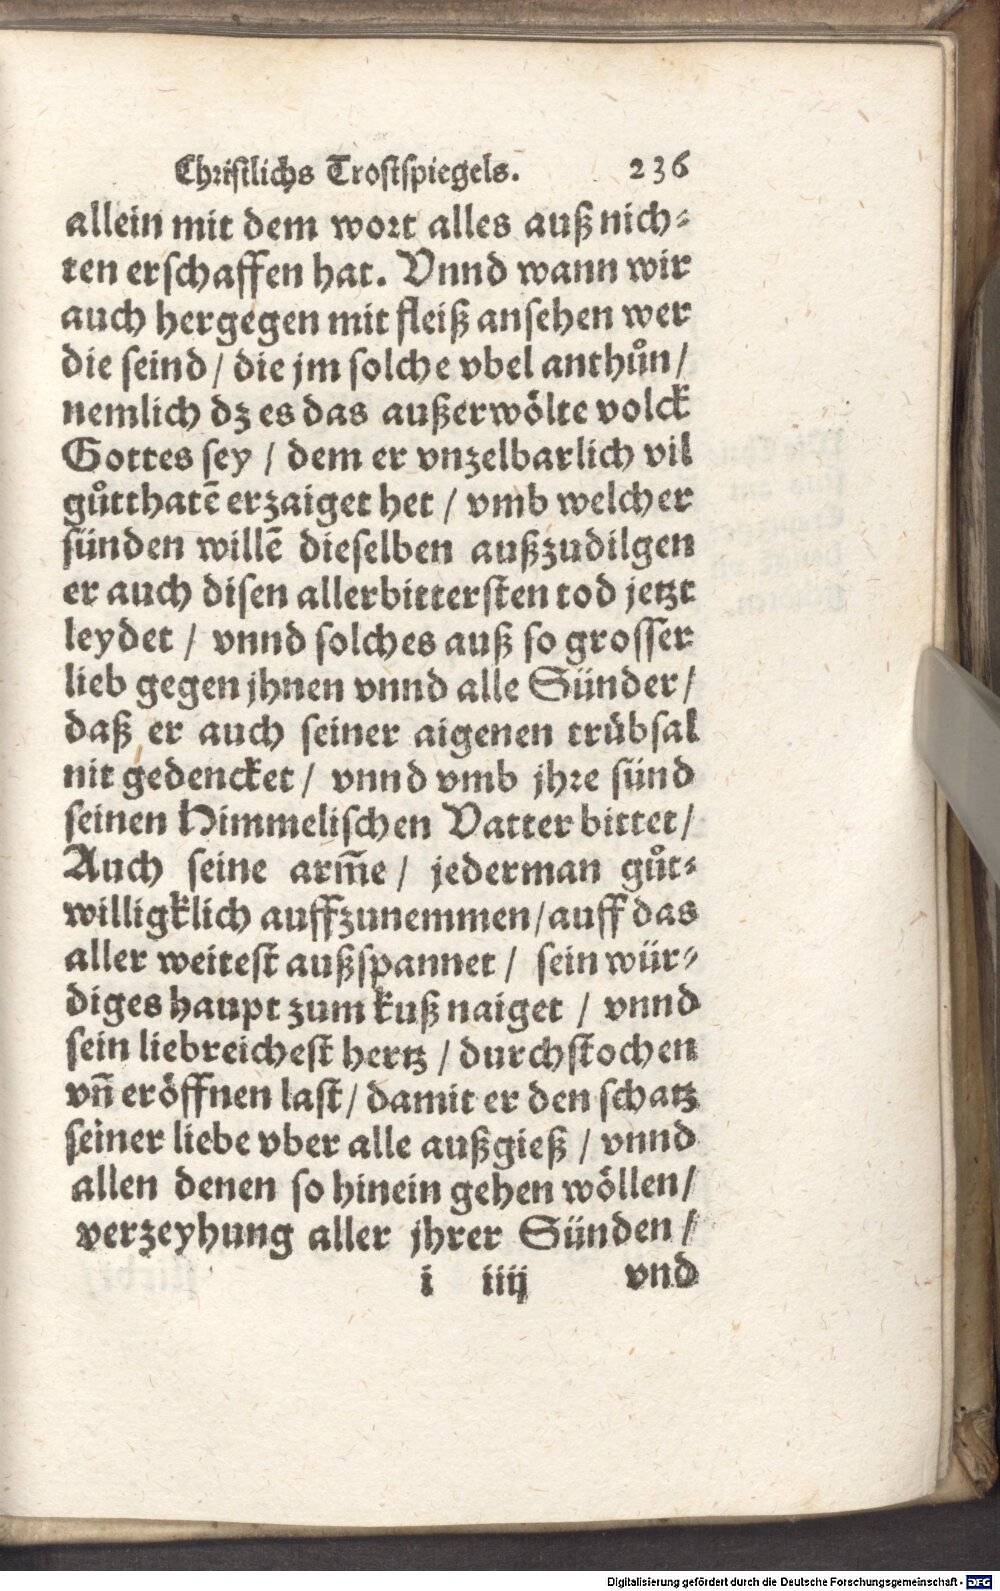 Christlichs Trostspiegels. 236
allein mit dem wort alles auß nich-
ten erschaffen hat. Vnnd wann wir
auch hergegen mit fleiß ansehen wer
die seind / die jm solche vbel anthůn /
nemlich dz es das außerwölte volck
Gottes sey / dem er vnzelbarlich vil
gůtthatē erzaiget het / vmb welcher
sünden willē dieselben außzudilgen
er auch disen allerbittersten tod jetzt
leydet / vnnd solches auß so grosser
lieb gegen jhnen vnnd alle Sünder /
daß er auch seiner aigenen trübsal
nit gedencket / vnnd vmb jhre sünd
seinen Himmelischen Vatter bittet /
Auch seine arm̃e / jederman gůt-
willigklich auffzunemmen / auff das
aller weitest außspannet / sein wür-
diges haupt zum kuß naiget / vnnd
sein liebreichest hertz / durchstochen
vñ eröffnen last / damit er den schatz
seiner liebe vber alle außgieß / vnnd
allen denen so hinein gehen wöllen /
verzeyhung aller jhrer Sünden /
i iiij vnd
Digitalisierung gefördert durch die Deutsche Forschungsgemeinschaft - DFG